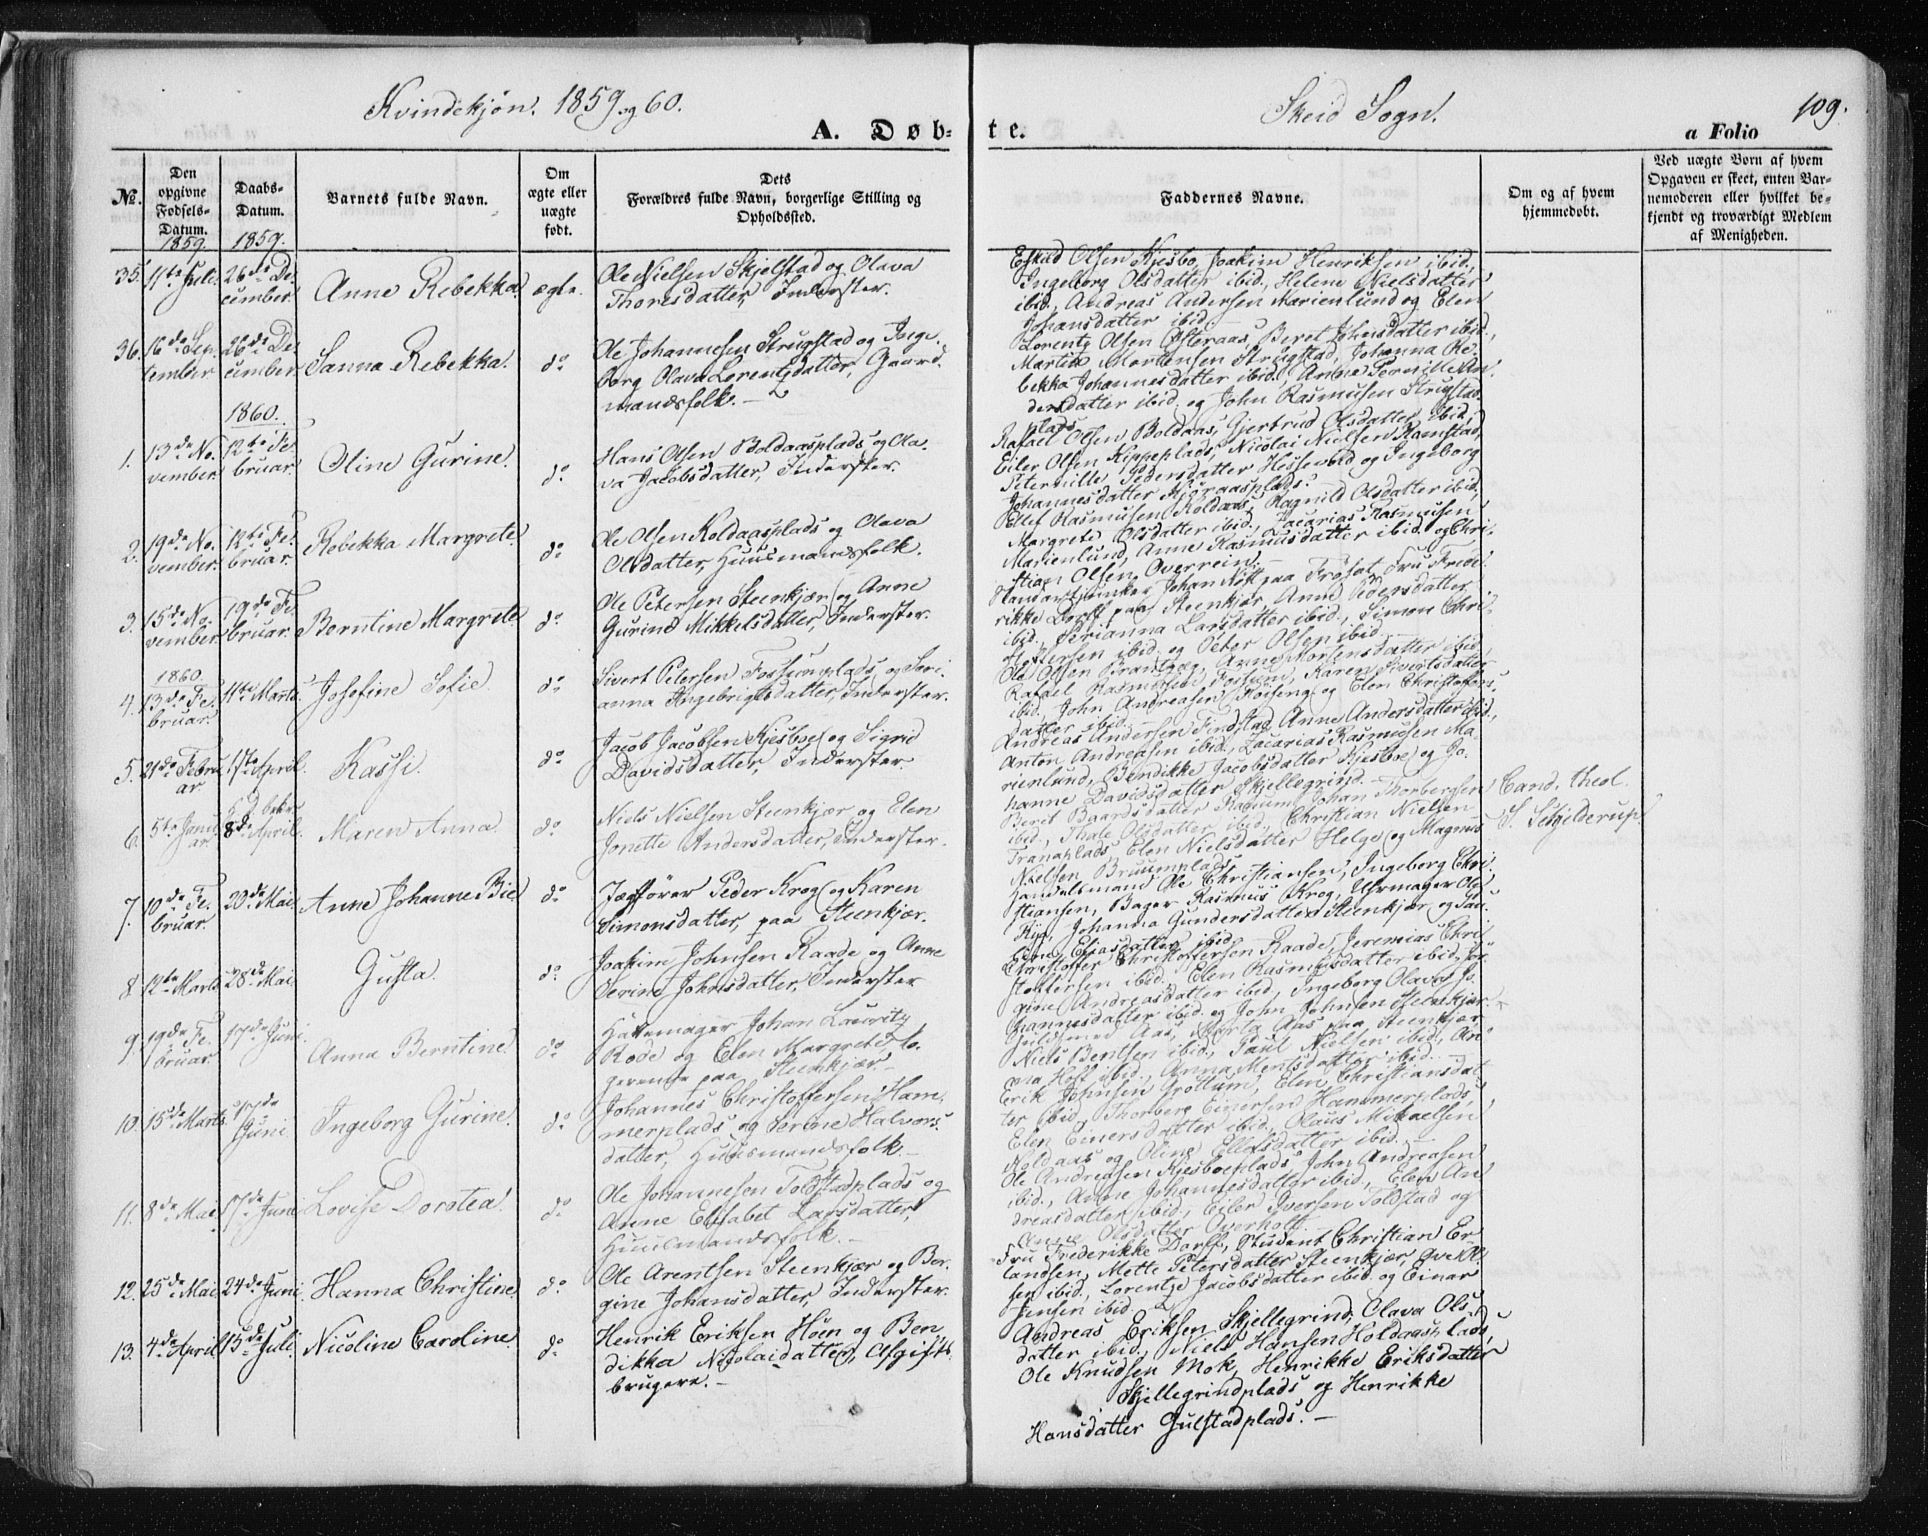 Kvindekjøn. 1859 og 60.
Skeid Sogn.
109.
A. Døb-
te.
a Folio
№.
Den opgivne Fødsels-Datum.
Daabs-Datum.
Barnets fulde Navn.
Om ægte eller uægte født.
Dets Forældres fulde Navn, borgerlige Stilling og Opholdssted.
Faddernes Navne.
Om og af hvem hjemmedøbt.
Ved uægte Børn af hvem Opgaven er skeet, enten Barnemoderen eller hvilket bekjendt og troværdigt Medlem af Menigheden.
1859. 1859.
35. 11te Juli. 26de De-
cember. Anne Rebekka. ægte.
Ole Nielsen Skjelstad og Olava
Thoresdatter, Inderster.
Eskild Olsen Kjesbo, Joakim Henriksen ibid.,
Ingeborg Olsdatter ibid., Helene Nielsdatter
ibid., Andreas Andersen Marienlund og Elen
Johansdatter ibid.
36. 16de Sep-
tember 26de De-
cember Sanna Rebekka. do
Ole Johannesen Strugstad og Inge-
borg Olava Lorentsdatter, Gaard-
mandsfolk.
Lorents Olsen Østeraas, Beret Johnsdatter ibid.,
Martin Mortensen Strugstad, Johanna Re-
bekka Johannesdatter ibid., Anne Pernille An-
dersdatter ibid. og John Rasmusen Strugstad-
plads.
1860.
1. 13de No-
vember. 12te Fe-
bruar. Oline Gurine. do
Hans Olsen Boldaasplads og Ola-
va Jacobsdatter, Inderster.
Rafael Olsen Boldaas, Gjertrud Olsdatter ibid.,
Eiler Olsen Kippeplads, Nicolai Nielsen Ramstad,
Peternille Pedersdatter Hessevold og Ingeborg
Johannesdatter
2. 19de No-
vember. 12te Fe-
bruar. Rebekka Margrete. do
Ole Olsen Roldaasplads og Olava
Olsdatter, Huusmandsfolk.
Ellef Rasmusen Roldaas, Ragnild Olsdatter ibid.,
Margrete Olsdatter ibid., Zacarias Rasmusen
Marienlund, Anne Rasmusdatter ibid. og Chri-
stian Olsen Overrein.
3. 15de No-
vember 19de Fe-
bruar. Berntine Margrete do
Ole Petersen Steenkjær og Anne
Gurine Mikkelsdatter, Inderster.
Standartjunker Johan paa Frøset, Fru Frede-
rikke Dorff paa Steenkjær, Anne Pedersdatter
ibid., Serianna Larsdatter ibid., Simon Chri-
stensen ibid. og Peter Olsen ibid.
1860.
4. 13de Fe-
bruar. 11te Marts. Josefine Sofie. do
Sivert Petersen Fossumplads og Seri-
anna Ingebrigtsdatter, Inderster.
Ole Olsen Anne Mortensdatter ibid.,
Rafael Rasmusen Fossum, Karen Sivertsdatter
ibid., John Andreasen og Elen Christoffers-
datter ibid.
5. 21de Febru-
ar 17de April. Kassi. do
Jacob Jacobsen Kjesboe og Sigrid
Davidsdatter, Inderster
Andreas Andersen Findstad, Anne Andersdatter ibid.,
Anton Andreasen ibid., Zacarias Rasmusen Ma-
rienlund, Bendikke Jacobsdatter Kjesboe og Jo-
hanne Davidsdatter Skjellegrind.
6. 5te Janu-
ar 8de April. Maren Anna. do
Niels Nielsen Steenkjær og Elen
Jonette Andersdatter, Inderster.
Berit Johan Thorbergsen
ibid., Thale Olsdatter ibid., Christian Nielsen
Tranaplads, Elen Nielsdatter Helge og Magnus
Nielsen Bruumplads.
Cand. theol.
S. Schjilderup
7. 10de Fe-
bruar. 20de Mai. Anne Johanne Bie do
Peder Krog og Karen
Simonsdatter, paa Steenkjær.
Handelsmand Ole Christiansen, Ingeborg Chri-
stiansen, Bager Rasmus Krog, Uhrmager Ole
Johanna Gundersdatter Steenkjær og
Eliasdatter ibid.
8. 12te Marts 28de Mai Gusta. do
Joakim Johnsen Raade og Anne
Serine Johnsdatter, Inderster
Christoffer Christoffersen Raade, Jeremias Chri-
stoffersen ibid., Elen Rasmusdatter ibid., Jør-
gine Andreasdatter ibid., Ingeborg Olava Jo-
hannesdatter ibid. og John Johnsen Steenkjær
9. 19de Fe-
bruar. 17de Juni. Anna Berntine. do
Hattemager Johan Lauritz
Rode og Elen Margrete, lo-
gerende paa Steenkjær.
Guldsmed Aas, Aas paa Steenkjær
Niels Bentsen ibid., Paul Nielsen ibid., An-
na Hoff ibid., Anna Mentsdatter ibid.
10. 15de Marts 17de
Juni Ingeborg Gurine. do
Johannes Christoffersen Ham-
merplads og Serine Halvors-
datter, Huusmandsfolk.
Erik Johnsen Grottum, Elen Christiansdat-
ter ibid., Thorberg Einersen Hammerplads,
Elen Einersdatter ibid., Olaus Mikaelsen
Roldaas og Oline Ellefsdatter ibid.
11. 8de Mai 17de Juni Lovise Dorotea. do
Ole Johannesen Toldstadplads og
Anne Elisabet Larsdatter,
Huusmandsfolk.
Ole Andreasen Kjesboeplads, John Andreasen
ibid., Anne Johannesdatter ibid., Elen An-
dreasdatter ibid., Eiler Iversen Toldstad og
Anne Olsdatter Overholt.
12. 25de Mai 24de Juni Hanna Christine. do
Ole Arentsen Steenkjær og Ber-
gine Johansdatter, Inderster.
Fru Frederikke Dorff, Student Christian Er-
landsen, Mette Petersdatter Steenkjær, Ove Ol-
sen ibid., Lorentze Jacobsdatter ibid. og Einar
Jensen ibid.
13. 4de April 15de Juli. Nicoline Caroline. do
Henrik Eriksen Høen og Ben-
dikka Nicolaidatter, Afgifts-
brugere.
Andreas Eriksen Skjellegrind, Olava Ols-
datter ibid., Niels Hansen Holdaasplads,
Ole Knudsen Mok, Henrikke Eriksdatter
Skjellegrindplads og Henrikke
Hansdatter Gulstadplads.